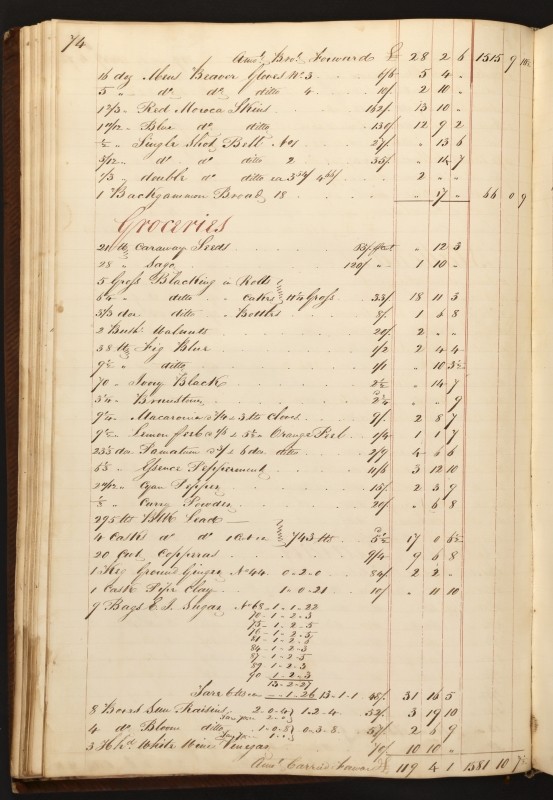 74
Amot Brot Forward £ 28 2 6 1515 9
16 dz Mens Beaver Gloves No 3 6/6 5 4 "
5 " do do ditto 4 10/ 2 10 "
1 2/3 " Red Moroca Skins 162/ 13 10 "
1 11/12 " Blue do ditto 130/ 12 9 2
½ " Single Shot Belt No 1 27/ " 13 6
5/12 " do do ditto 2 35/ " 14 7
½ " double do ditto 2 " "
1 Backgammon Broad 18 " 17 " 66 0 9
Groceries
21 lb Carraway Seeds " 12 3
28 " Sago 120/ " 1 10 "
5 Gross Blacking in Rolls
6¼ " ditto " Cakes 11¼ Gross 33/ 18 11 3
3⅓ doz ditto " Bottles 8/ 1 6 8
2 Bush: Walnuts 20/ 2 " "
38 lb Fig Blue 1/2 2 4 4
9½ " ditto 1/1 " 10 3½
70 " Ivory Black 2½ " 14 7
3¼ " Brimstone 2¼ " " 9
9¼ " Macaronia 3 lb Cloves 9/ 2 8 7
9½ " Lemon & Orange Peel 1 1 7
23⅓ doz Pomatum & 6 doz ditto 4 6 6
" Essence Pepperment 11/6 3 12 10
" Cyan Pepper 15/ 2 3 9
⅓ " Curry Powder 20/ " 6 8
295 lb Blk Lead
4 Casks do do 1 Cwt ea 743 lb 5½ 17 0 6½
20 Cwt Copperas 9/4 9 6 8
1 Keg Ground Ginger No 44 0-2-0 84/ 2 2 "
1 Cask Pipe Clay 1-0-21 10/ " 11 10
9 Bags E I Sugar No 68-1-1-22
70-1-2-3
73-1-2-5
76-1-2-5
81-1-2-3
84-1-2-3
87-1-2-5
89-1-2-3
90 1-2-3
13-2-27
Tare 6 lb ea 1-26 13-1-1 48/ 31 16 5
8 Boxes Sun Raisins 2-0-4 1-2-4 52/ 3 19 10
4 do Bloom ditto 1-0-8 0-3-8 57/ 2 6 9
3 Hhds White Wine Vinegar 70/ 10 10 "
Amot Carried Forward £ 119 4 1 1581 10